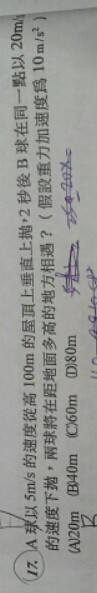 17. A 球以 5m/s 的速度從高 100m 的屋頂上垂直上拋，2 秒後 B 球在同一點以 20m/s
的速度下拋，兩球將在距地面多高的地方相遇？（假設重力加速度為 10 m/s²）
(A)20m (B)40m (C)60m (D)80m
B